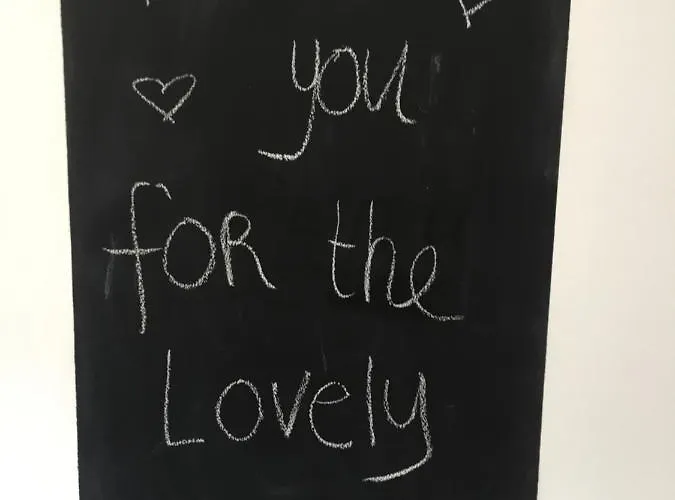 you
foR the
Lovely